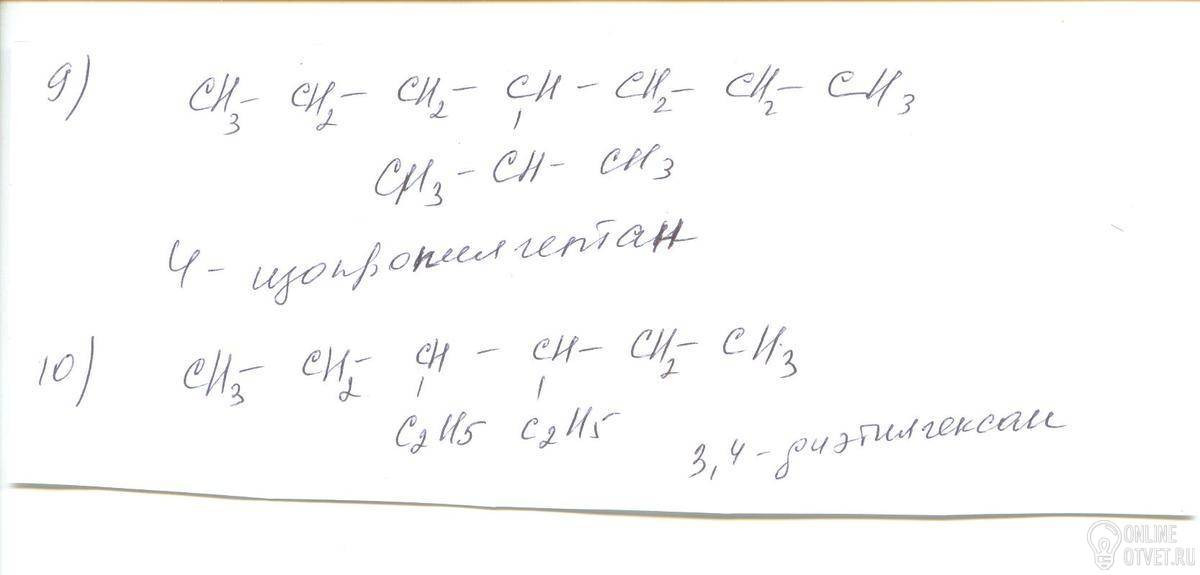 9) CH3 - CH2 - CH2 - CH - CH2 - CH2 - CH3
CH3 - CH - CH3
4 - изопропилгептан
10) CH3 - CH2 - CH - CH - CH2 - CH3
C2H5 C2H5
3,4 - диэтилгексан
ONLINE
OTVET.RU